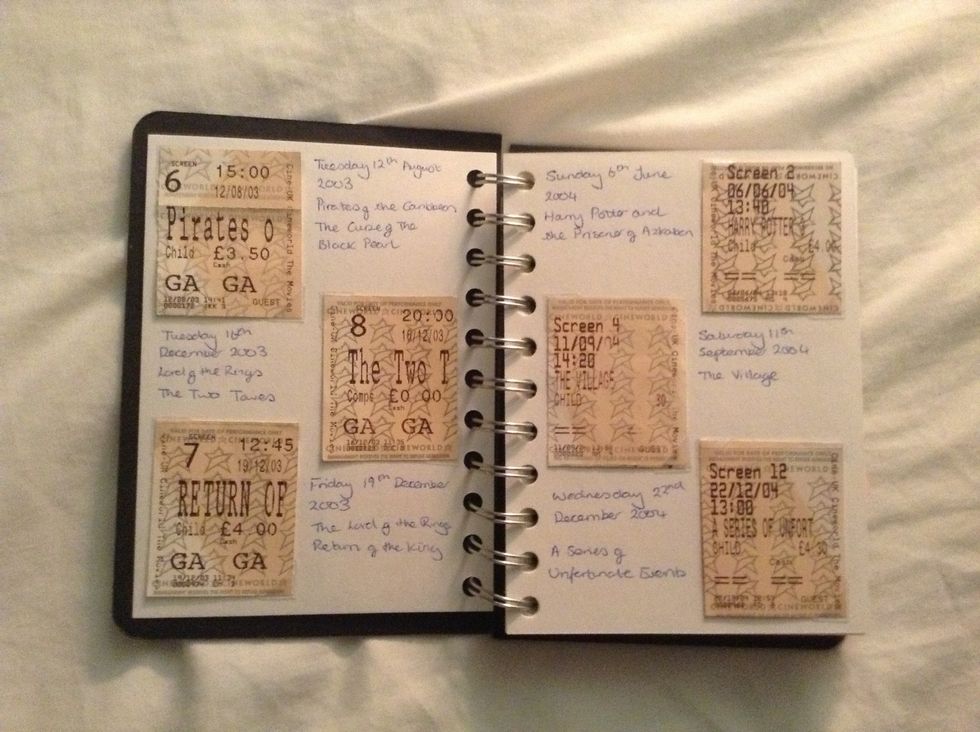 SCREEN
6 15:00
12/08/03
Pirates o
Child £3.50
Cash
GA GA
GUEST
Tuesday 12th August
2003
Pirates of the Caribbean
The Curse of The
Black Pearl
Tuesday 16th
December 2003
Lord of the Rings
The Two Towers
VALID FOR DATE OF PERFORMANCE ONLY
CINEWORLD CINEWORLD
SCREEN
8 20:00
16/12/03
The Two T
Comps £0.00
Cash
GA GA
CINEWORLD
VALID FOR DATE OF PERFORMANCE ONLY
CINEWORLD CINEWORLD
SCREEN
7 12:45
19/12/03
RETURN OF
Child £4.00
Cash
GA GA
CINEWORLD
Friday 19th December
2003
The Lord of the Rings
Return of the King
Sunday 6th June
2004
Harry Potter and
the Prisoner of Azkaban
Screen 2
06/06/04
13:40
HARRY POTTER
Child £4.00
Cash
== ==
CINEWORLD
Screen 4
11/09/04
14:20
THE VILLAGE
CHILD
==
GUEST
CINEWORLD
Saturday 11th
September 2004
The Village
Wednesday 22nd
December 2004
A Series of
Unfortunate Events
VALID FOR DATE OF PERFORMANCE ONLY
CINEWORLD
Screen 12
22/12/04
13:00
A SERIES OF UNFORT
CHILD £4.30
Cash
== ==
GUEST
CINEWORLD